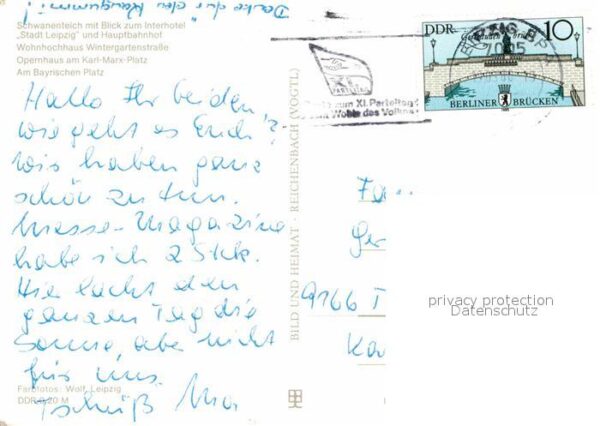 Danke für den Kaugummi!
Schwanenteich mit Blick zum Interhotel
"Stadt Leipzig" und Hauptbahnhof
Wohnhochhaus Wintergartenstraße
Opernhaus am Karl-Marx-Platz
Am Bayrischen Platz
Hallo Ihr beiden
wie geht es Euch?
Wir haben ganz
schön zu tun.
Messe-Magazine
habe ich 2 Stck.
Hier lacht den
ganzen Tag die
Sonne, aber nicht
für uns.
Tschüß
Farbfotos: Wolf, Leipzig
DDR 0,20 M
BILD UND HEIMAT · REICHENBACH (VOGTL)
XI.
PARTEITAG
zum XI. Parteitag
Wohle des Volkes
LEIPZIG BPA
7085
DDR
10
BERLINER BRÜCKEN
Fa
Ger
9166 T
Ka
privacy protection
Datenschutz